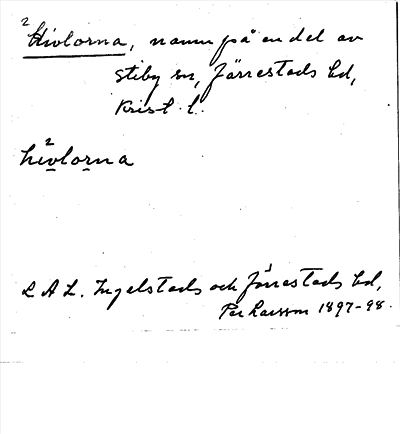 2 Hivlorna, namn på en del av
Stiby sn, Järrestads hd,
Krist. l.
2
hivlorna
L A L. Ingelstads och Järrestads hd,
Per Larsson 1897-98.